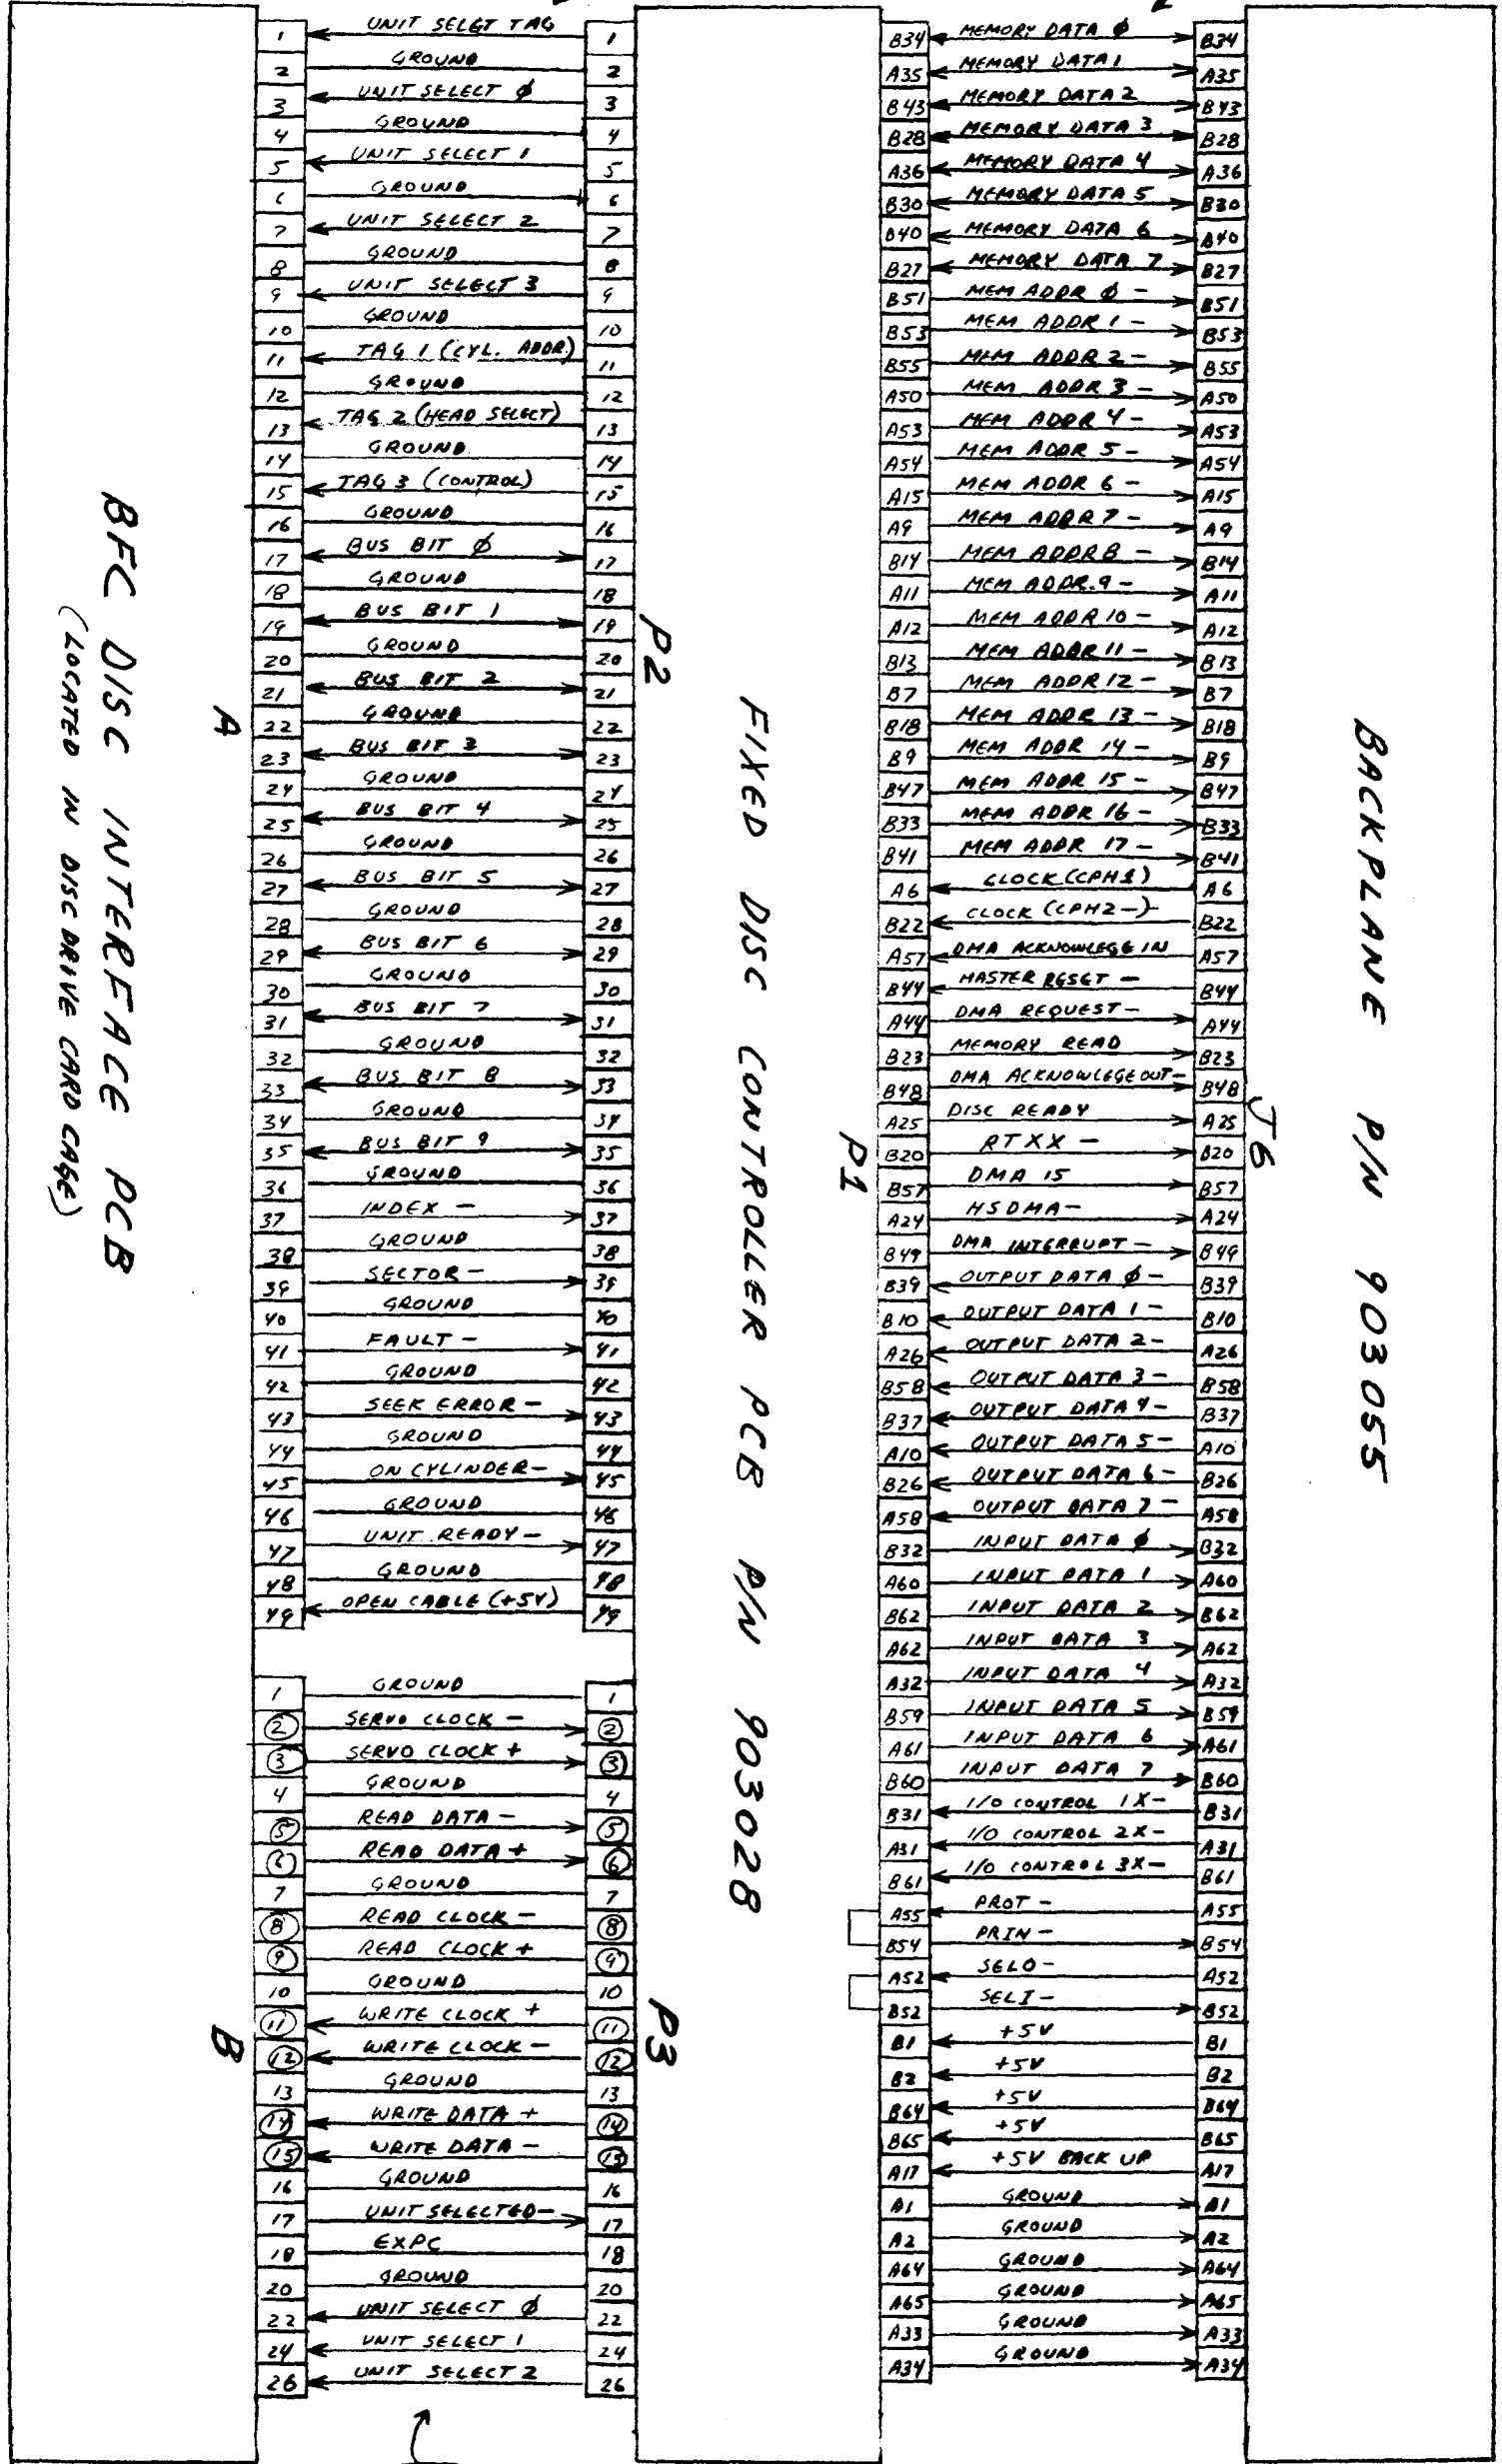 BFC DISC INTERFACE PCB
(LOCATED IN DISC DRIVE CARD CAGE)
A
1 UNIT SELECT TAG 1
2 GROUND 2
3 UNIT SELECT Ø 3
4 GROUND 4
5 UNIT SELECT 1 5
6 GROUND 6
7 UNIT SELECT 2 7
8 GROUND 8
9 UNIT SELECT 3 9
10 GROUND 10
11 TAG 1 (CYL. ADDR) 11
12 GROUND 12
13 TAG 2 (HEAD SELECT) 13
14 GROUND 14
15 TAG 3 (CONTROL) 15
16 GROUND 16
17 BUS BIT Ø 17
18 GROUND 18
19 BUS BIT 1 19
20 GROUND 20
21 BUS BIT 2 21
22 GROUND 22
23 BUS BIT 3 23
24 GROUND 24
25 BUS BIT 4 25
26 GROUND 26
27 BUS BIT 5 27
28 GROUND 28
29 BUS BIT 6 29
30 GROUND 30
31 BUS BIT 7 31
32 GROUND 32
33 BUS BIT 8 33
34 GROUND 34
35 BUS BIT 9 35
36 GROUND 36
37 INDEX - 37
38 GROUND 38
39 SECTOR - 39
40 GROUND 40
41 FAULT - 41
42 GROUND 42
43 SEEK ERROR - 43
44 GROUND 44
45 ON CYLINDER - 45
46 GROUND 46
47 UNIT READY - 47
48 GROUND 48
49 OPEN CABLE (+5V) 49
P2
B
1 GROUND 1
2 SERVO CLOCK - 2
3 SERVO CLOCK + 3
4 GROUND 4
5 READ DATA - 5
6 READ DATA + 6
7 GROUND 7
8 READ CLOCK - 8
9 READ CLOCK + 9
10 GROUND 10
11 WRITE CLOCK + 11
12 WRITE CLOCK - 12
13 GROUND 13
14 WRITE DATA + 14
15 WRITE DATA - 15
16 GROUND 16
17 UNIT SELECTED - 17
18 EXPC 18
20 GROUND 20
22 UNIT SELECT Ø 22
24 UNIT SELECT 1 24
26 UNIT SELECT 2 26
P3
FIXED DISC CONTROLLER PCB P/N 903028
P1
B34 MEMORY DATA Ø B34
A35 MEMORY DATA 1 A35
B43 MEMORY DATA 2 B43
B28 MEMORY DATA 3 B28
A36 MEMORY DATA 4 A36
B30 MEMORY DATA 5 B30
B40 MEMORY DATA 6 B40
B27 MEMORY DATA 7 B27
B51 MEM ADDR Ø - B51
B53 MEM ADDR 1 - B53
B55 MEM ADDR 2 - B55
A50 MEM ADDR 3 - A50
A53 MEM ADDR 4 - A53
A54 MEM ADDR 5 - A54
A15 MEM ADDR 6 - A15
A9 MEM ADDR 7 - A9
B14 MEM ADDR 8 - B14
A11 MEM ADDR. 9 - A11
A12 MEM ADDR 10 - A12
B13 MEM ADDR 11 - B13
B7 MEM ADDR 12 - B7
B18 MEM ADDR 13 - B18
B9 MEM ADDR 14 - B9
B47 MEM ADDR 15 - B47
B33 MEM ADDR 16 - B33
B41 MEM ADDR 17 - B41
A6 CLOCK (CPH1) A6
B22 CLOCK (CPH2-) B22
A57 DMA ACKNOWLEGE IN A57
B44 MASTER RESET - B44
A44 DMA REQUEST - A44
B23 MEMORY READ B23
B48 DMA ACKNOWLEGE OUT - B48
A25 DISC READY A25
B20 RTXX - B20
B57 DMA 15 B57
A24 HSDMA - A24
B49 DMA INTERRUPT - B49
B39 OUTPUT DATA Ø - B39
B10 OUTPUT DATA 1 - B10
A26 OUTPUT DATA 2 - A26
B58 OUTPUT DATA 3 - B58
B37 OUTPUT DATA 4 - B37
A10 OUTPUT DATA 5 - A10
B26 OUTPUT DATA 6 - B26
A58 OUTPUT DATA 7 - A58
B32 INPUT DATA Ø B32
A60 INPUT DATA 1 A60
B62 INPUT DATA 2 B62
A62 INPUT DATA 3 A62
A32 INPUT DATA 4 A32
B59 INPUT DATA 5 B59
A61 INPUT DATA 6 A61
B60 INPUT DATA 7 B60
B31 I/O CONTROL 1X - B31
A31 I/O CONTROL 2X - A31
B61 I/O CONTROL 3X - B61
A55 PROT - A55
B54 PRIN - B54
A52 SELO - A52
B52 SELI - B52
B1 +5V B1
B2 +5V B2
B64 +5V B64
B65 +5V B65
A17 +5V BACK UP A17
A1 GROUND A1
A2 GROUND A2
A64 GROUND A64
A65 GROUND A65
A33 GROUND A33
A34 GROUND A34
J6
BACKPLANE P/N 903055